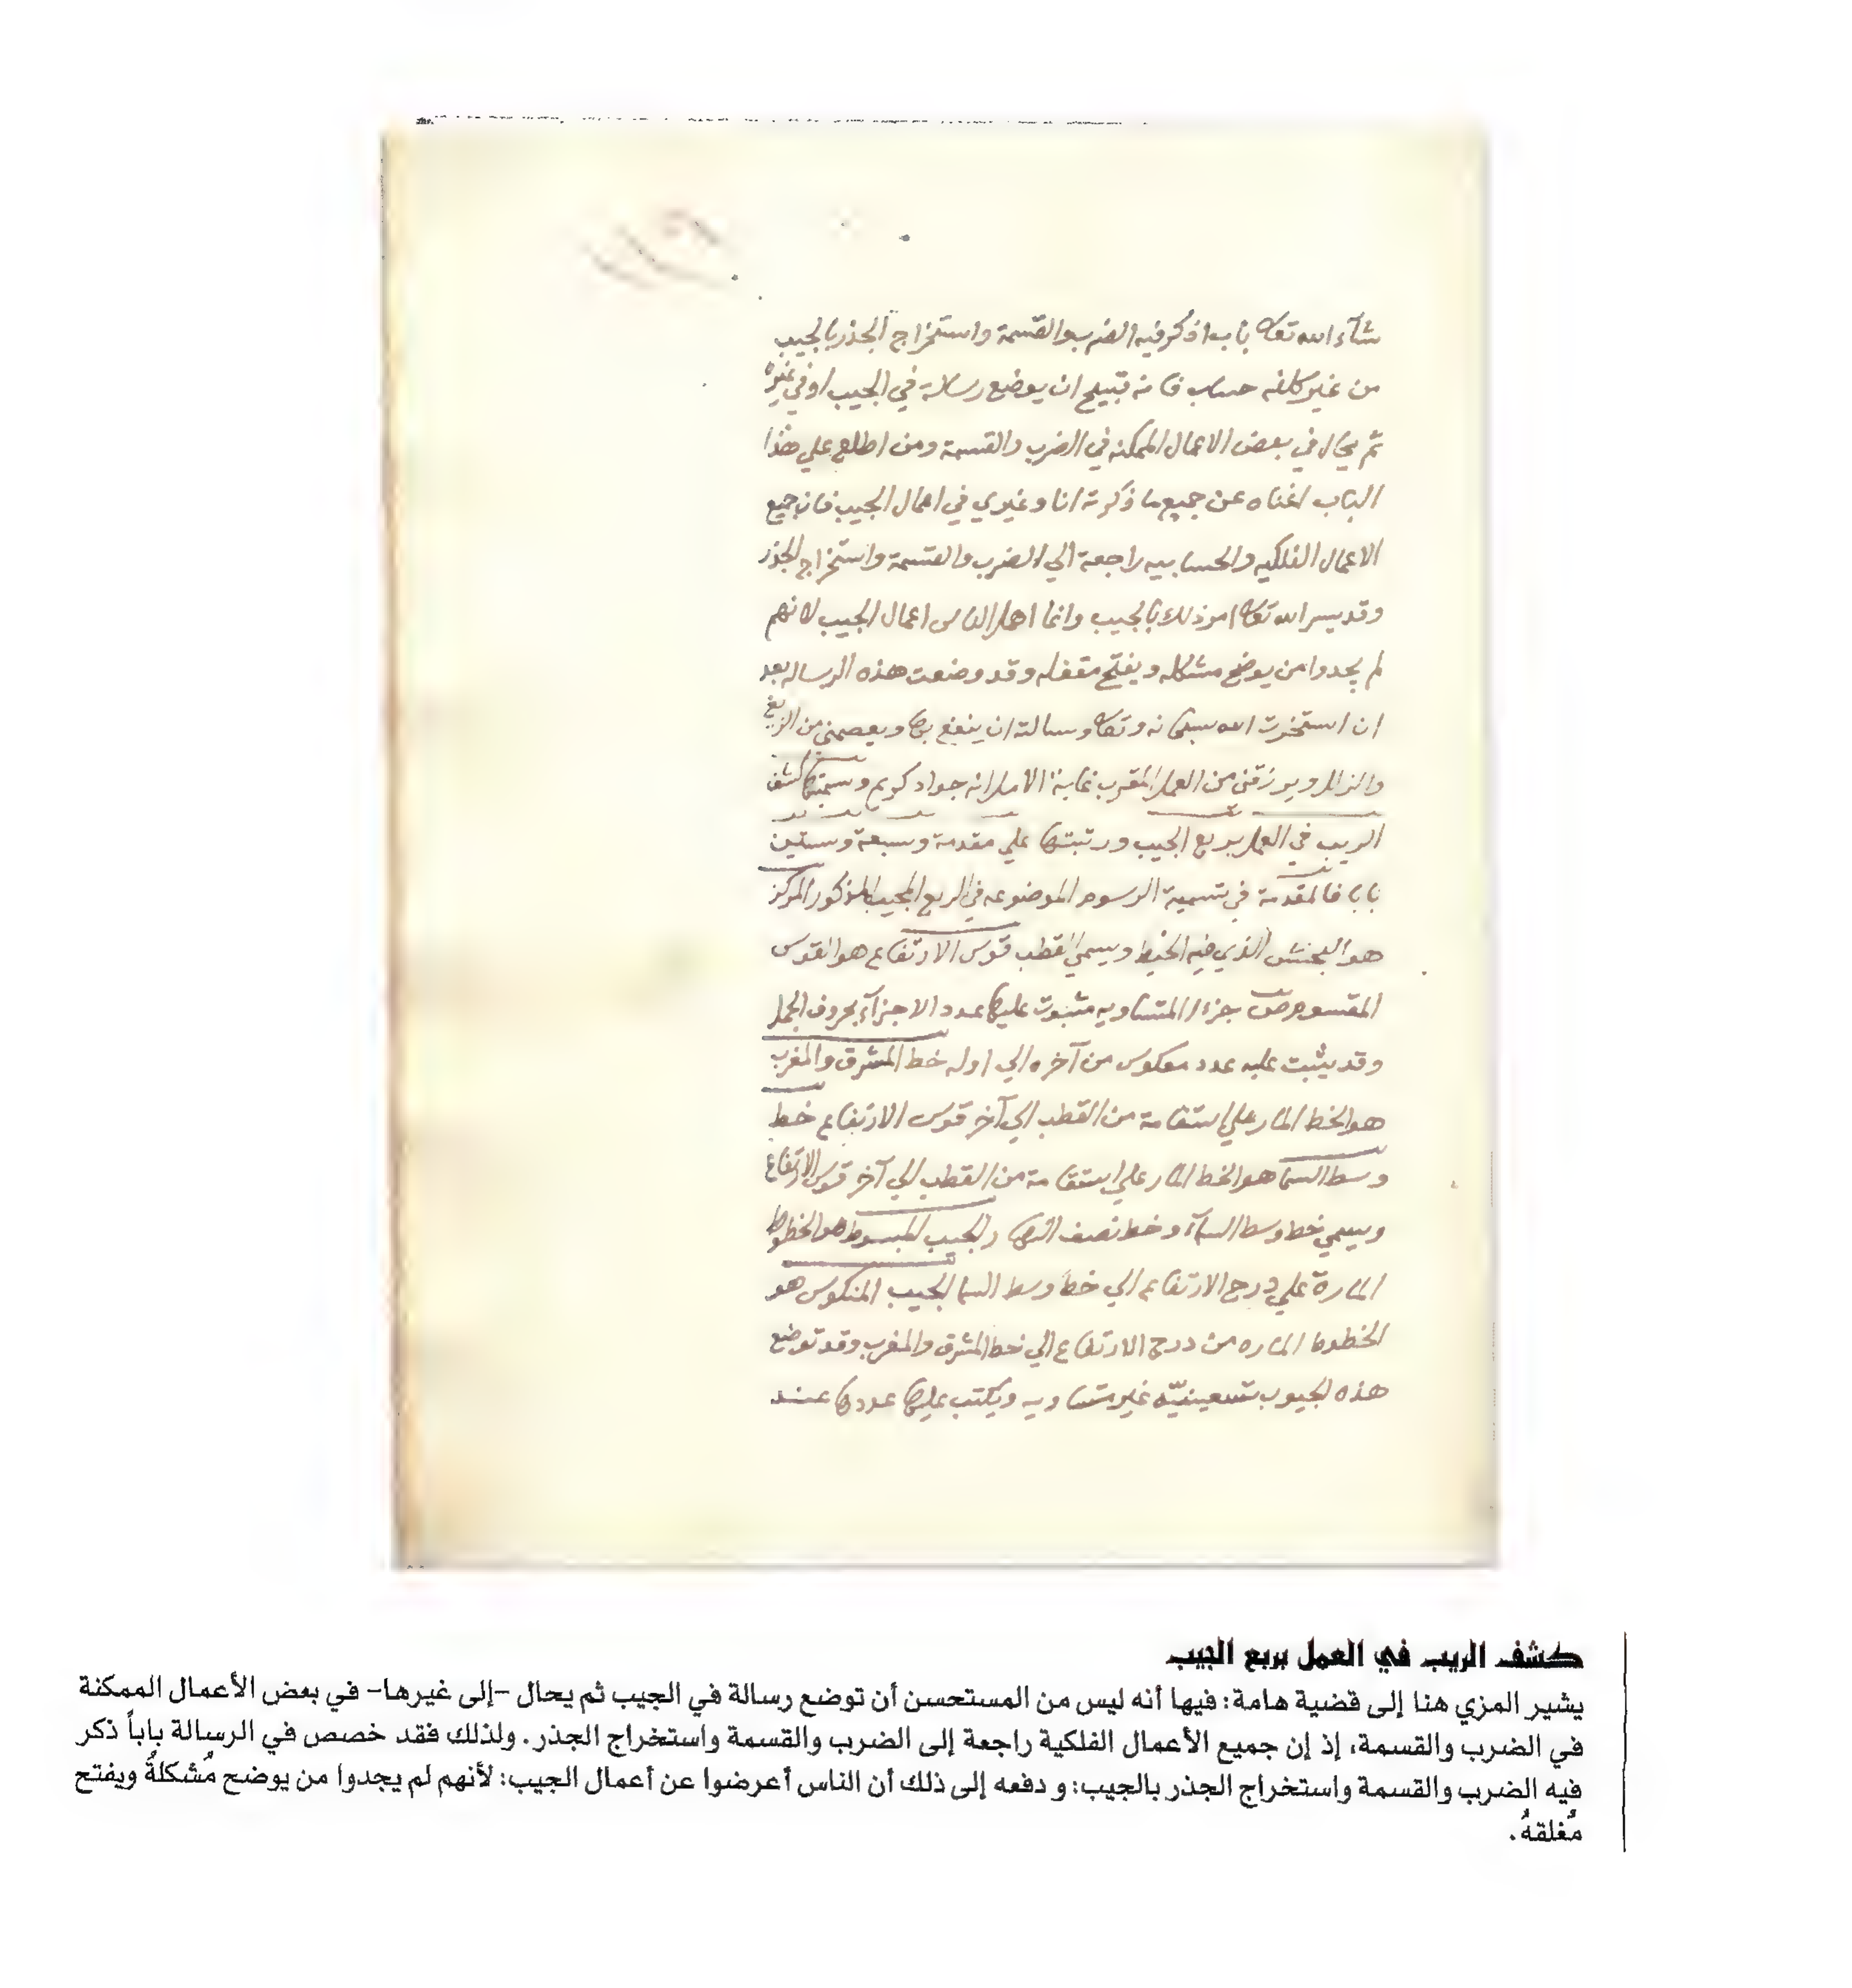 شآء الله تعالى باب اذكر فيه الضرب والقسمة واستخراج الجذر بالجيب
من غير كلفه حساب فانه قبيح ان يوضع رسالة في الجيب او في غيره
ثم يحال في بعض الاعمال الممكنه في الضرب والقسمة ومن اطلع علي هذا
الباب اغناه عن جميع ما ذكرته انا وغيري في اعمال الجيب فان جميع
الاعمال الفلكيه والحسابيه راجعة الي الضرب والقسمة واستخراج الجذر
وقد يسر الله تعالى امر ذلك بالجيب وانما اهمل الناس اعمال الجيب لانهم
لم يجدوا من يوضح مشكله ويفتح مقفله وقد وضعت هذه الرساله بعد
ان استخرت الله سبحانه وتعالى وسالته ان ينفع بها ويعصمني من الزيغ
والزلل ويرزقني من العمل المقرب غاية الامل انه جواد كريم وسميتها كشف
الريب في العمل بربع الجيب ورتبتها علي مقدمة وسبعة وستين
بابا فالمقدمة في تسمية الرسوم الموضوعه في الربع المجيب المذكور المركز
هو البخش الذي فيه الخيط ويسمي القطب قوس الارتفاع هو القوس
المقسوم جزءا المتساويه مثبوت عليها عدد الاجزآء بحروف الجمل
وقد يثبت عليه عدد معكوس من آخره الي اوله خط المشرق والمغرب
هو الخط المار علي استقامة من القطب الي آخر قوس الارتفاع خط
وسط السما هو الخط المار علي استقامة من القطب الي آخر قوس الارتفاع
ويسمي خط وسط السمآء وخط نصف النهار والجيب المبسوط هو الخطوط
المارة علي درج الارتفاع الي خط وسط السما الجيب المنكوس هو
الخطوط الماره من درج الارتفاع الي خط المشرق والمغرب وقد توضع
هذه الجيوب تسعينيّه غير متساويه ويكتب عليها عددها عند
كشف الريب في العمل بربع الجيب
يشير المزي هنا إلى قضية هامة: فيها أنه ليس من المستحسن أن توضع رسالة في الجيب ثم يحال -إلى غيرها- في بعض الأعمال الممكنة
في الضرب والقسمة، إذ إن جميع الأعمال الفلكية راجعة إلى الضرب والقسمة واستخراج الجذر. ولذلك فقد خصص في الرسالة باباً ذكر
فيه الضرب والقسمة واستخراج الجذر بالجيب: و دفعه إلى ذلك أن الناس أعرضوا عن أعمال الجيب: لأنهم لم يجدوا من يوضح مُشكلهُ ويفتح
مُغلقهُ.